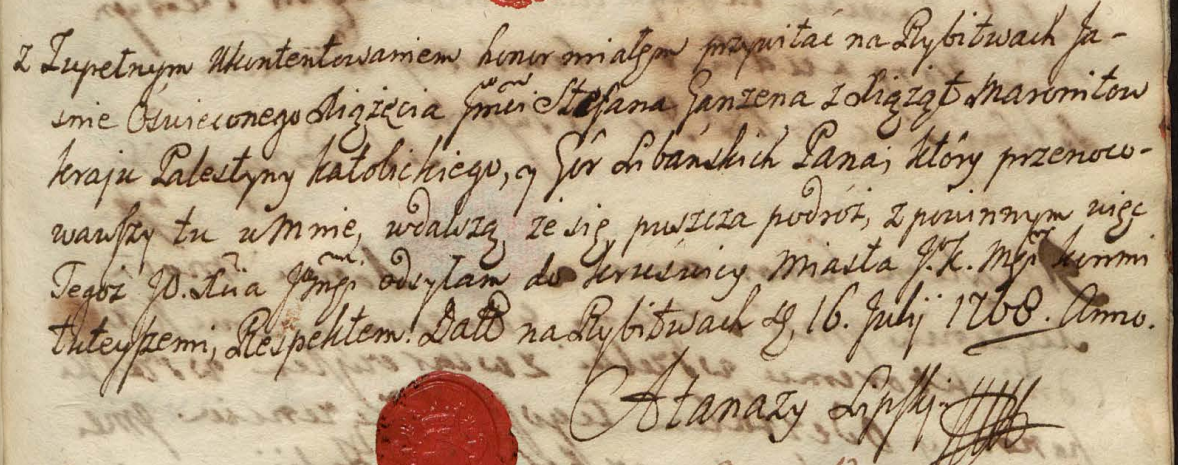 z Zupełnym Ukontentowaniem honor miałem przywitać na Rybitwach Ja-
snie Oświeconego Xiążęcia Jmci Stefana Ganzena z Xiążąt Maronitow
kraju Palestyny katolickiego, y Gór Libańskich Pana, który przenoco-
wawszy tu u Mnie, w dalszą, że się puszcza podróż, z powinnym więc
Tegoż JO. Xcia Jmci odsyłam do kruswicy Miasta J. K. Mci końmi
tuteyszemi, Respektem. Datt na Rybitwach d, 16. Julij 1768. Anno.
Atanazy Lipski